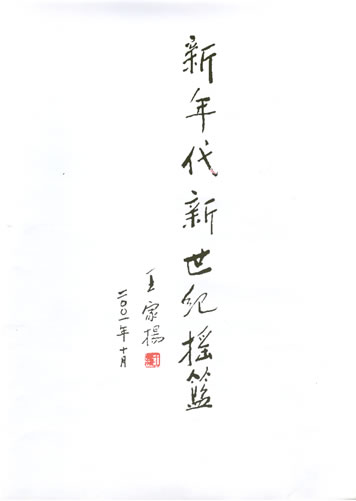 新年代新世纪摇篮
王家扬
二〇〇一年十月